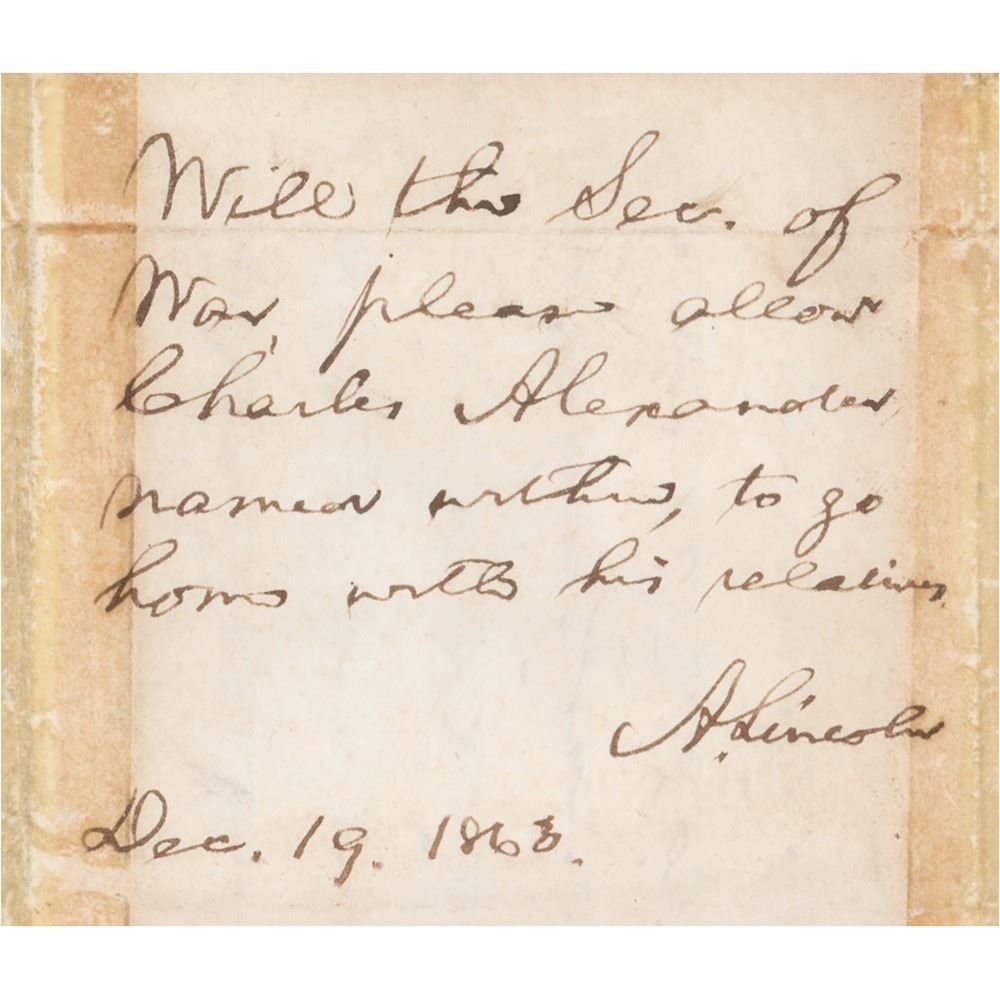 Will the Sec. of
War, please allow
Charles Alexander,
named within, to go
home with his relatives.
A. Lincoln
Dec. 19. 1863.